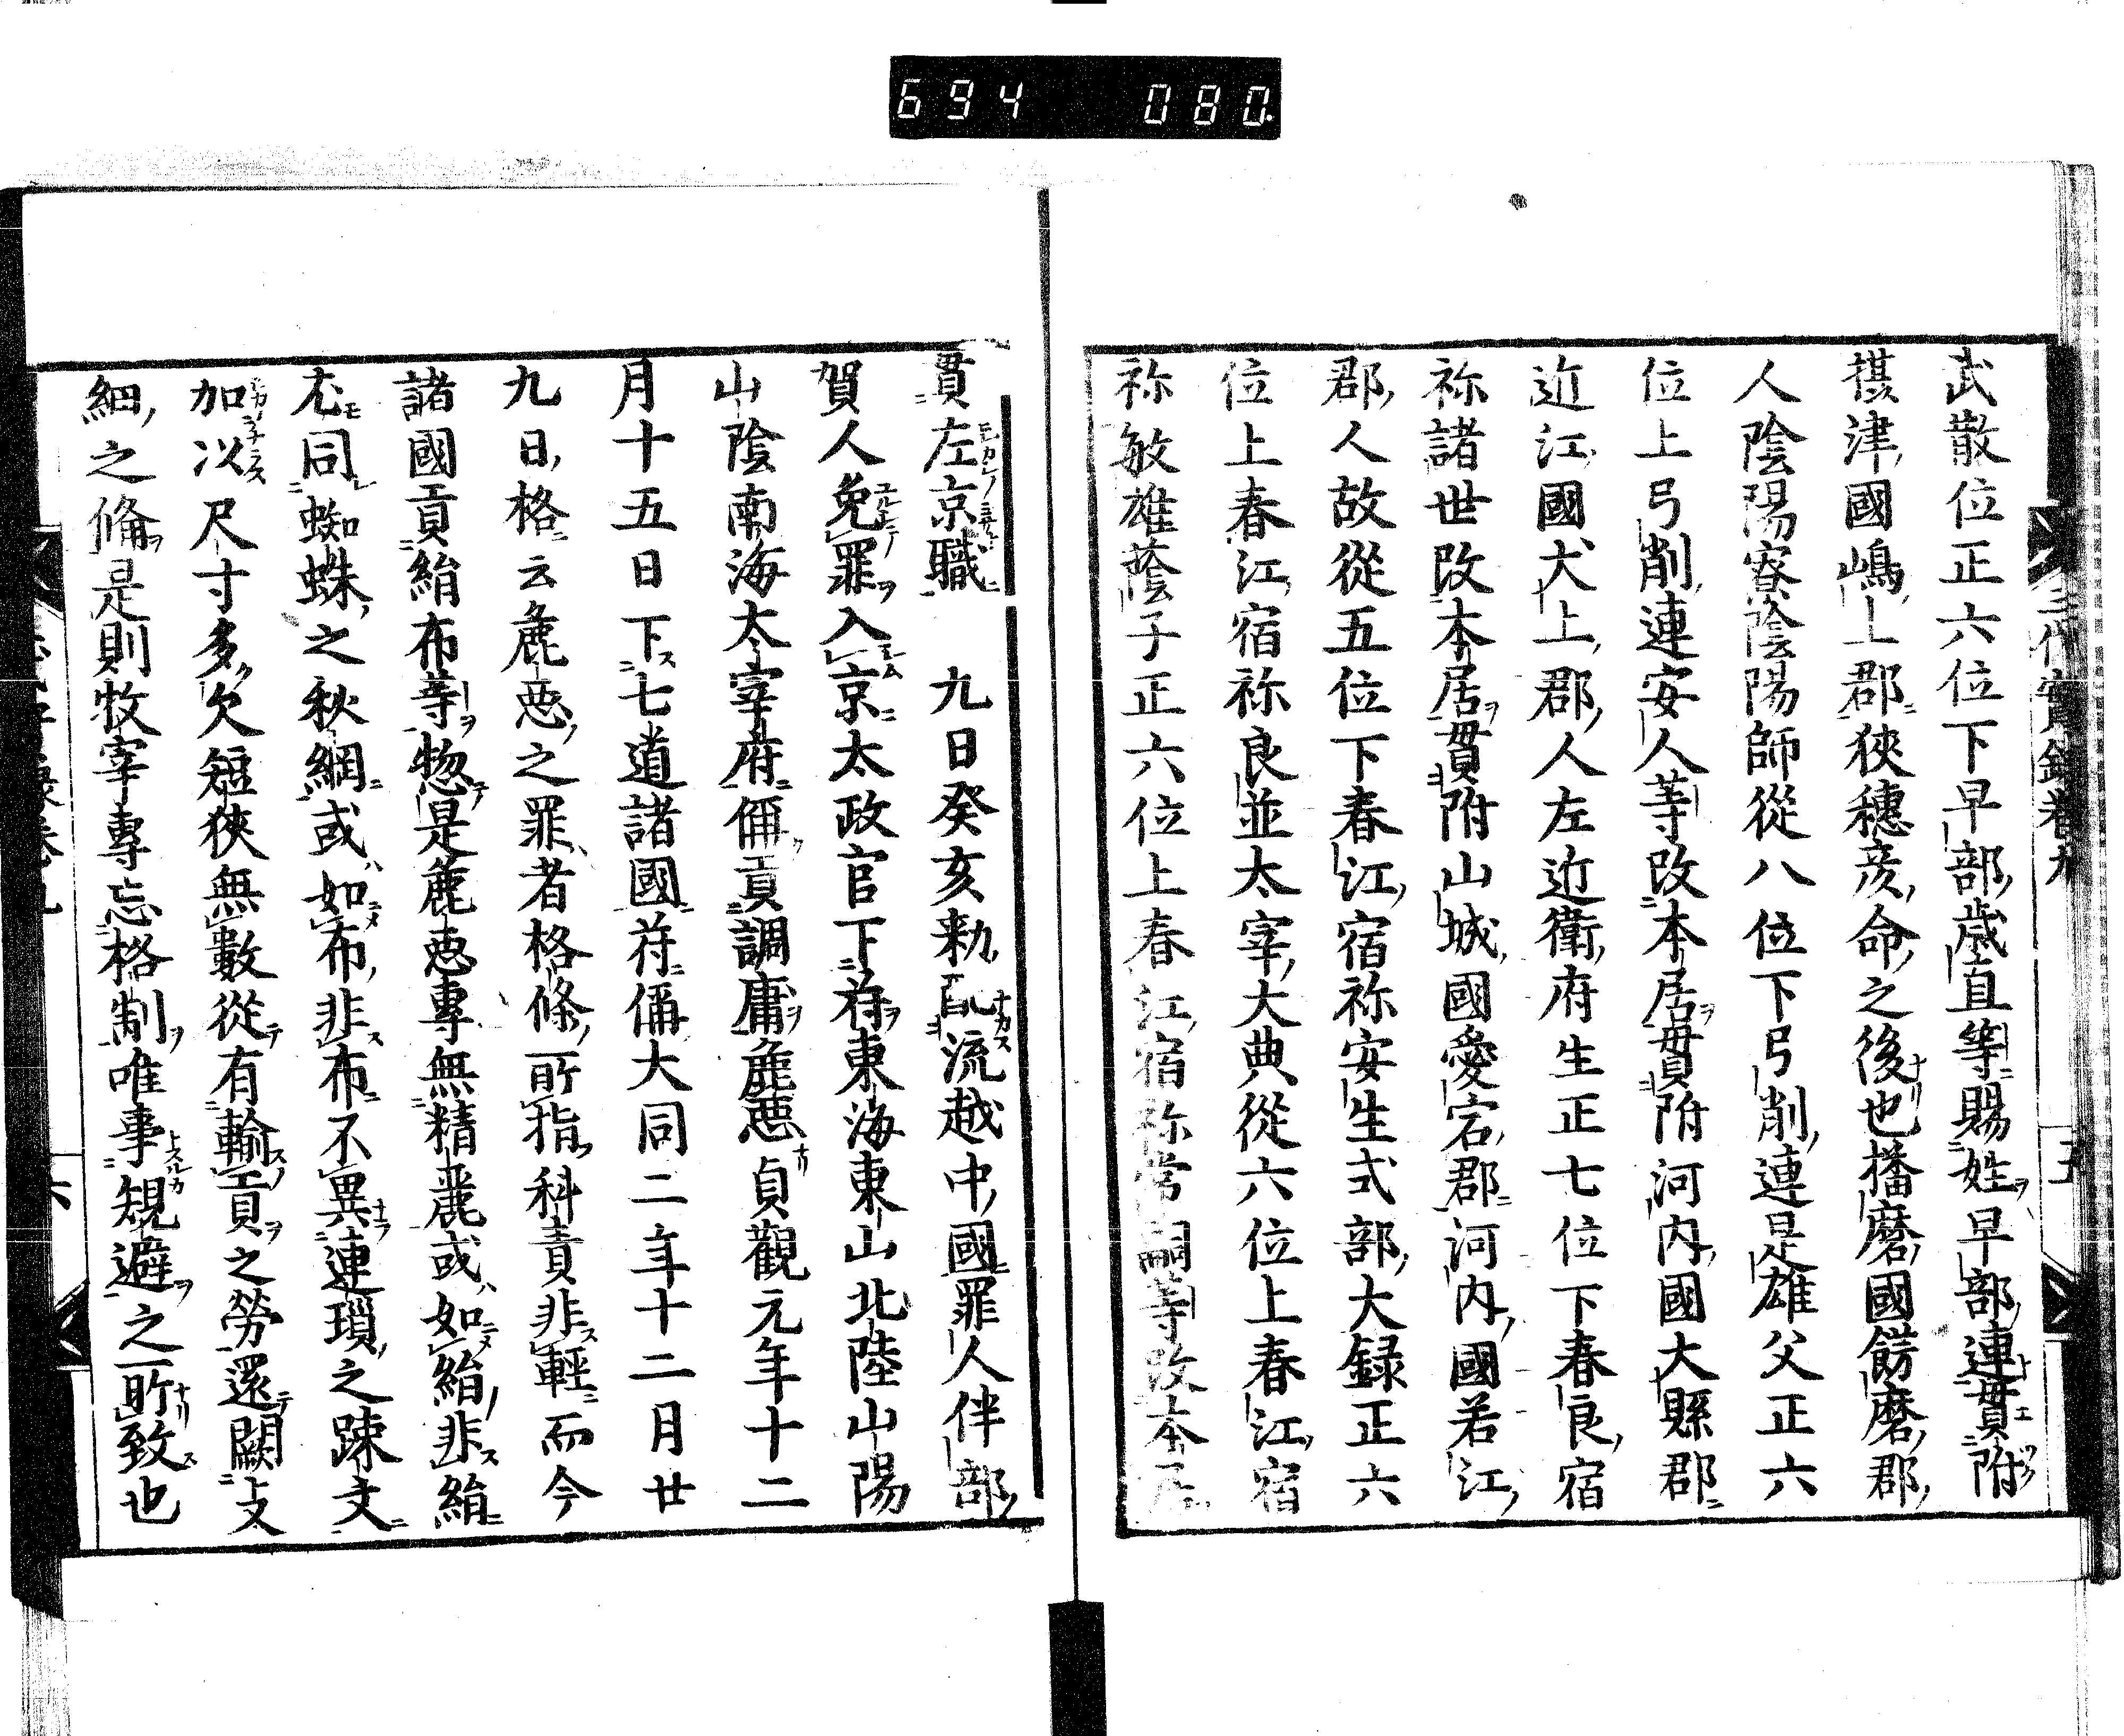 694 080
三代實録卷九
五
武散位正六位下早部歳直等賜姓早部連貫附
攝津國嶋上郡狹穗彦命之後也播磨國餝磨郡
人陰陽寮陰陽師從八位下弓削連是雄父正六
位上弓削連安人等改本居貫附河内國大縣郡
近江國犬上郡人左近衛府生正七位下春良宿
祢諸世改本居貫附山城國愛宕郡河内國若江
郡人故從五位下春江宿祢安生式部大録正六
位上春江宿祢良並太宰大典從六位上春江宿
祢敏雄蔭子正六位上春江宿祢常嗣等改本居
貫左京職　九日癸亥勅配流越中國罪人伴部
賀人免罪入京太政官下符東海東山北陸山陽
山陰南海太宰府偁貢調庸麁惡貞觀元年十二
月十五日下七道諸國符偁大同二年十二月廿
九日格云麁惡之罪者格條所指科責非輕而今
諸國貢絹布等惣是麁惡專無精麗或如絹非絹
尤同蜘蛛之秋網或如布非布不異連瑣之踈文
加以尺寸多欠短狹無數從有輸貢之勞還闕支
細之脩是則牧宰專忘格制唯事規避之所致也
六